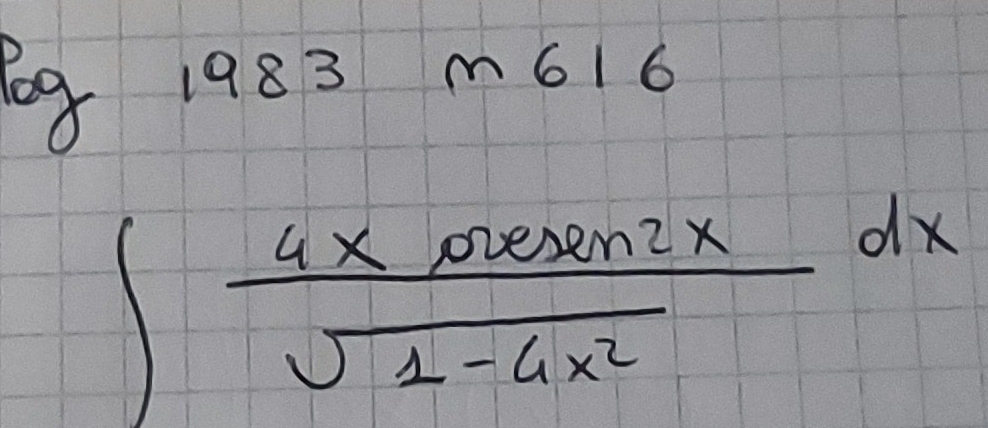 Pag 1983 n 616
∫ 4x arcsen2x / √1-4x² dx